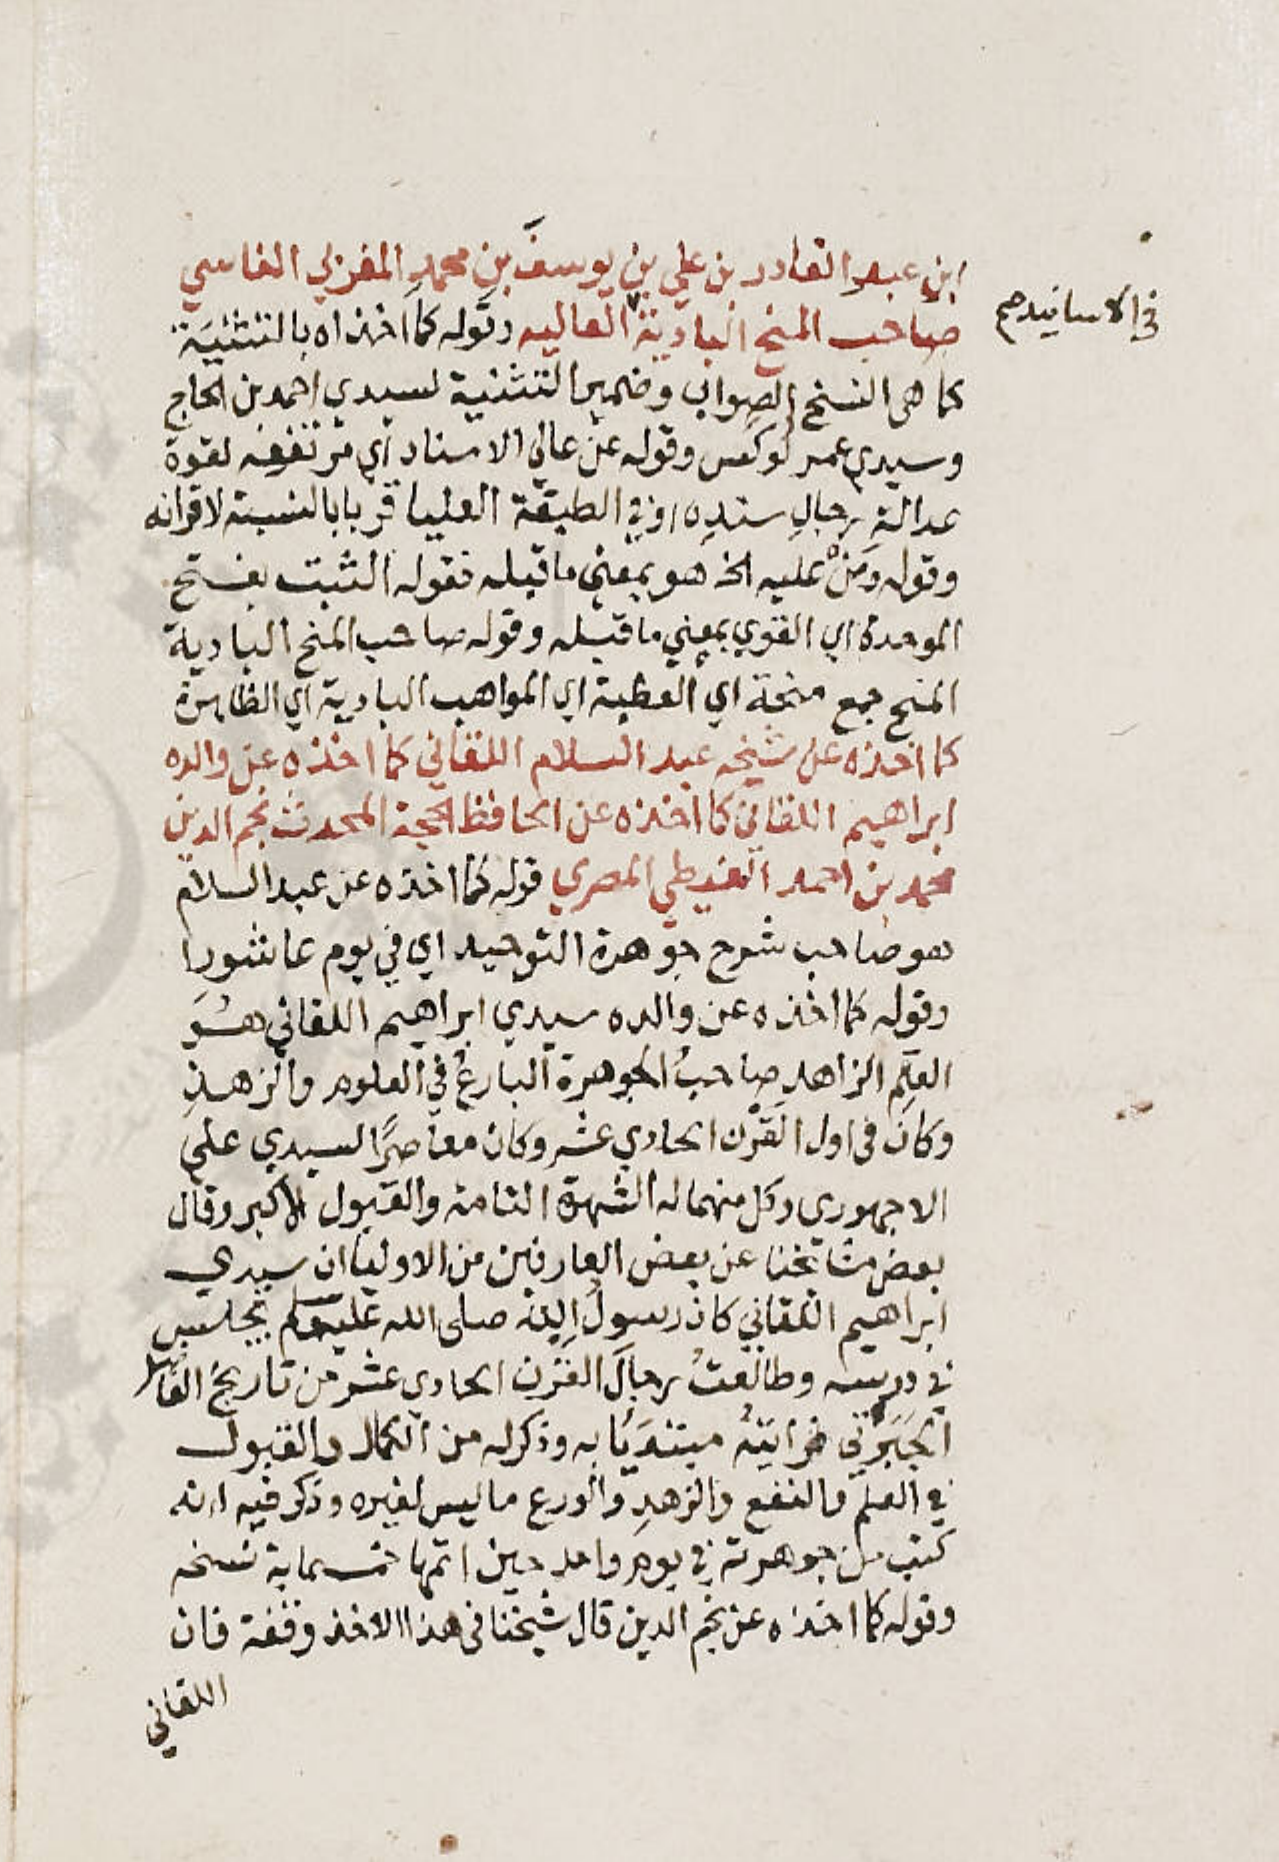 ابن عبد القادر بن علي بن يوسف بن محمد المغربي الفاسي
في الاسانيد صح
صاحب المنح البادية العالية وقوله كما اخذاه بالتثنية
كما هي النسخ الصواب وضمير التثنية لسيدي احمد بن الحاج
وسيدي عمر لوكس وقوله عن عالي الاسناد اي مرتفعه لقوة
عدالة رجال سنده او في الطبقة العليا قربا بالنسبة لاقرانه
وقوله ومن عليه الخ هو بمعني ما قبله فقوله الثبت بفتح
الموحدة اي القوي بمعني ما قبله وقوله صاحب المنح البادية
المنح جمع منحة اي العطية اي المواهب البادية اي الظاهرة
كما اخذه عن شيخه عبد السلام اللقاني كما اخذه عن والده
ابراهيم اللقاني كما اخذه عن الحافظ الحجة المحدث نجم الدين
محمد بن احمد الغيطي المصري قوله كما اخذه عن عبد السلام
هو صاحب شرح جوهرة التوحيد اي في يوم عاشورا
وقوله كما اخذه عن والده سيدي ابراهيم اللقاني هو
العلم الزاهد صاحب الجوهرة البارع في العلوم والزهد
وكان في اول القرن الحادي عشر وكان معاصرا لسيدي علي
الاجهوري وكل منهما له الشهرة التامة والقبول الاكبر وقال
بعض مشايخنا عن بعض العارفين من الاوليا ان سيدي
ابراهيم اللقاني كان رسول الله صلى الله عليه وسلم يجلس
في درسه وطالعت رجال القرن الحادي عشر من تاريخ الفاضل
الجبرتي فرايته مبتديا به وذكر له من الكمال والقبول
في العلم والنفع والزهد والورع ما ليس لغيره وذكر فيه انه
كتب من جوهرته في يوم واحد حين اتمها خمسماية نسخه
وقوله كما اخذه عن نجم الدين قال شيخنا في هذا الاخذ وقفة فان
اللقاني